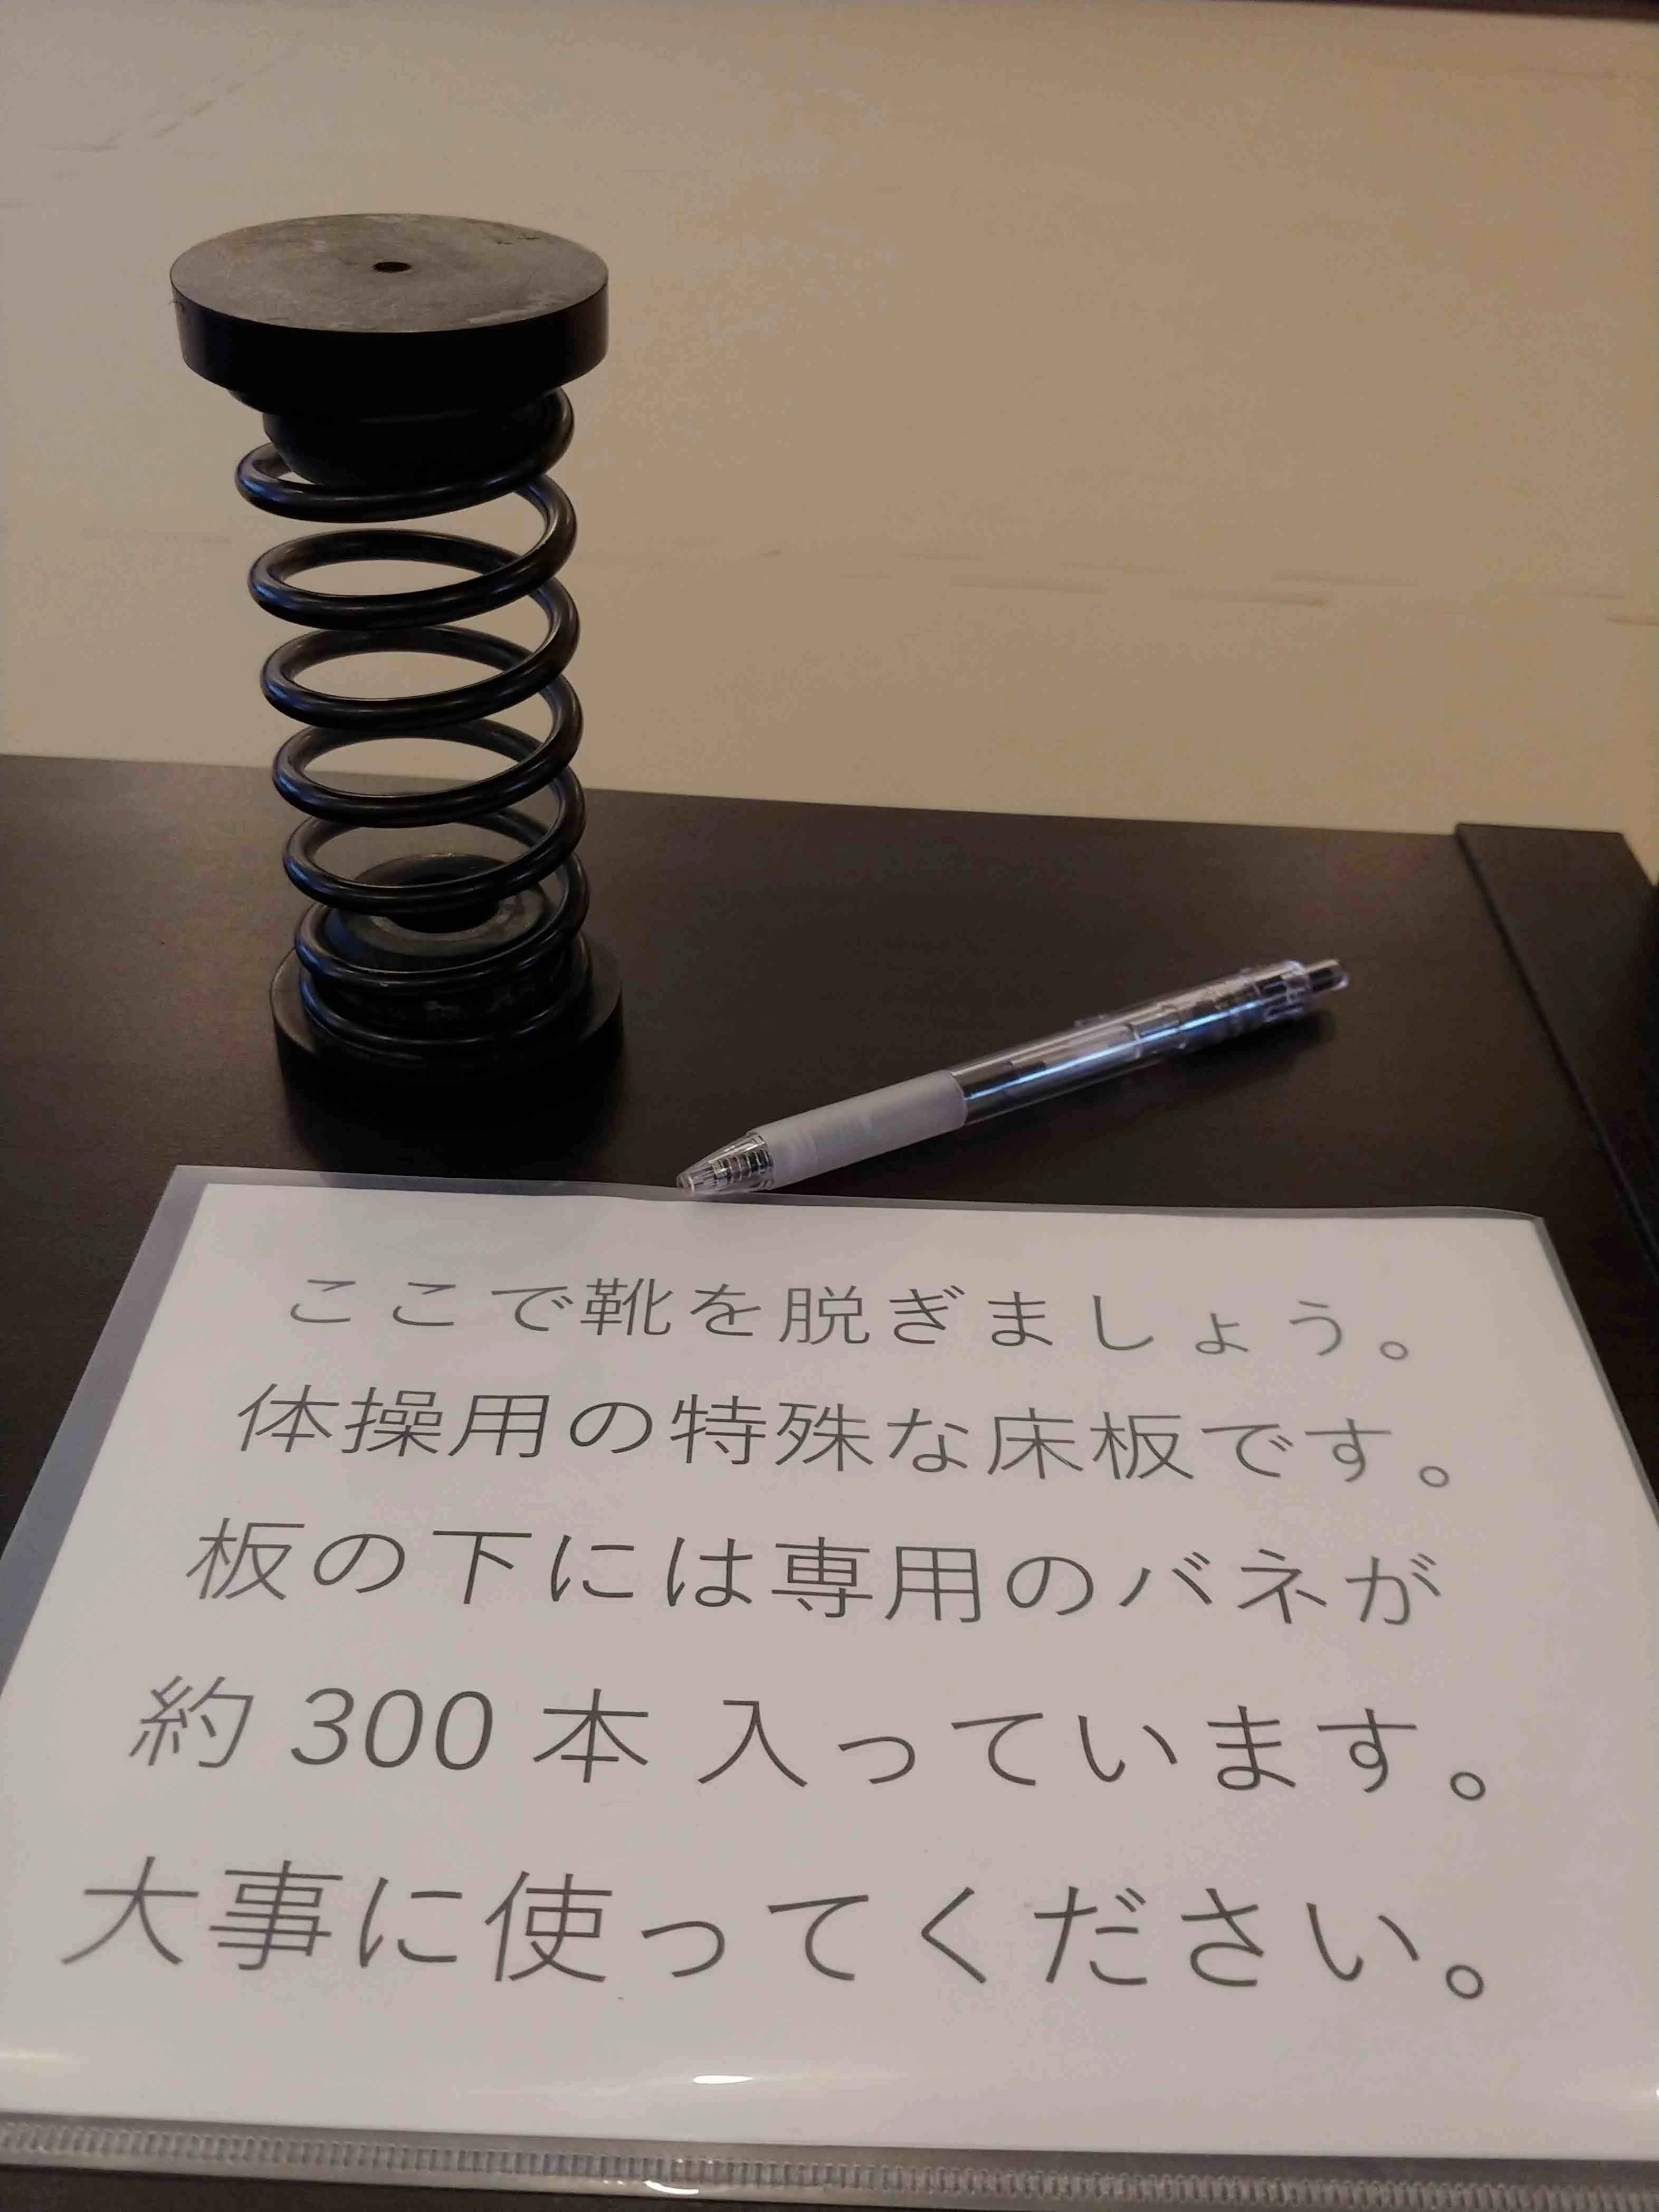 ここで靴を脱ぎましょう。
体操用の特殊な床板です。
板の下には専用のバネが
約 300 本 入っています。
大事に使ってください。